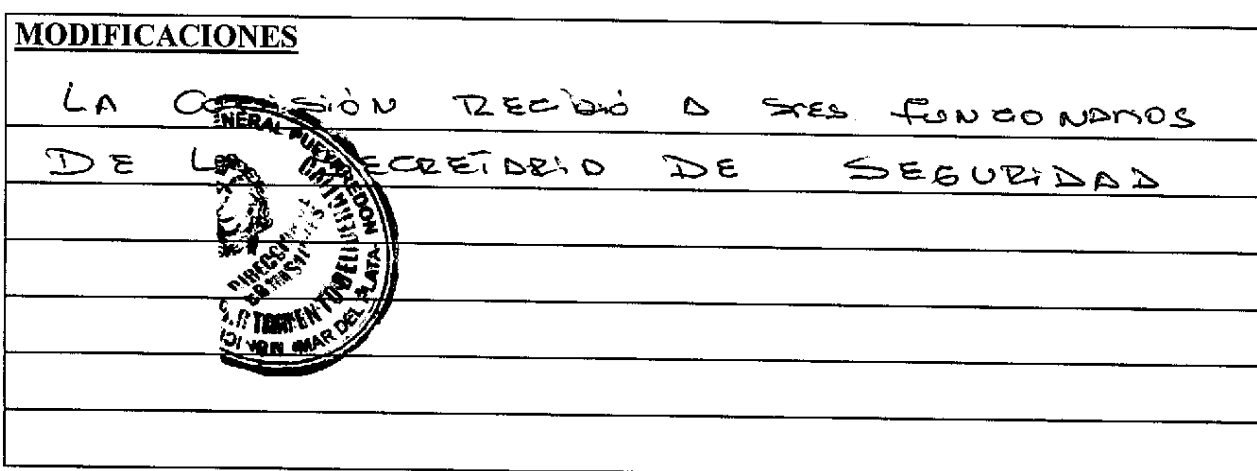 MODIFICACIONES
LA COMISIÓN RECIBIÓ A FUNCIONARIOS
DE LA SECRETARIA DE SEGURIDAD
NERAL PUEYRREDON
MAR DEL PLATA